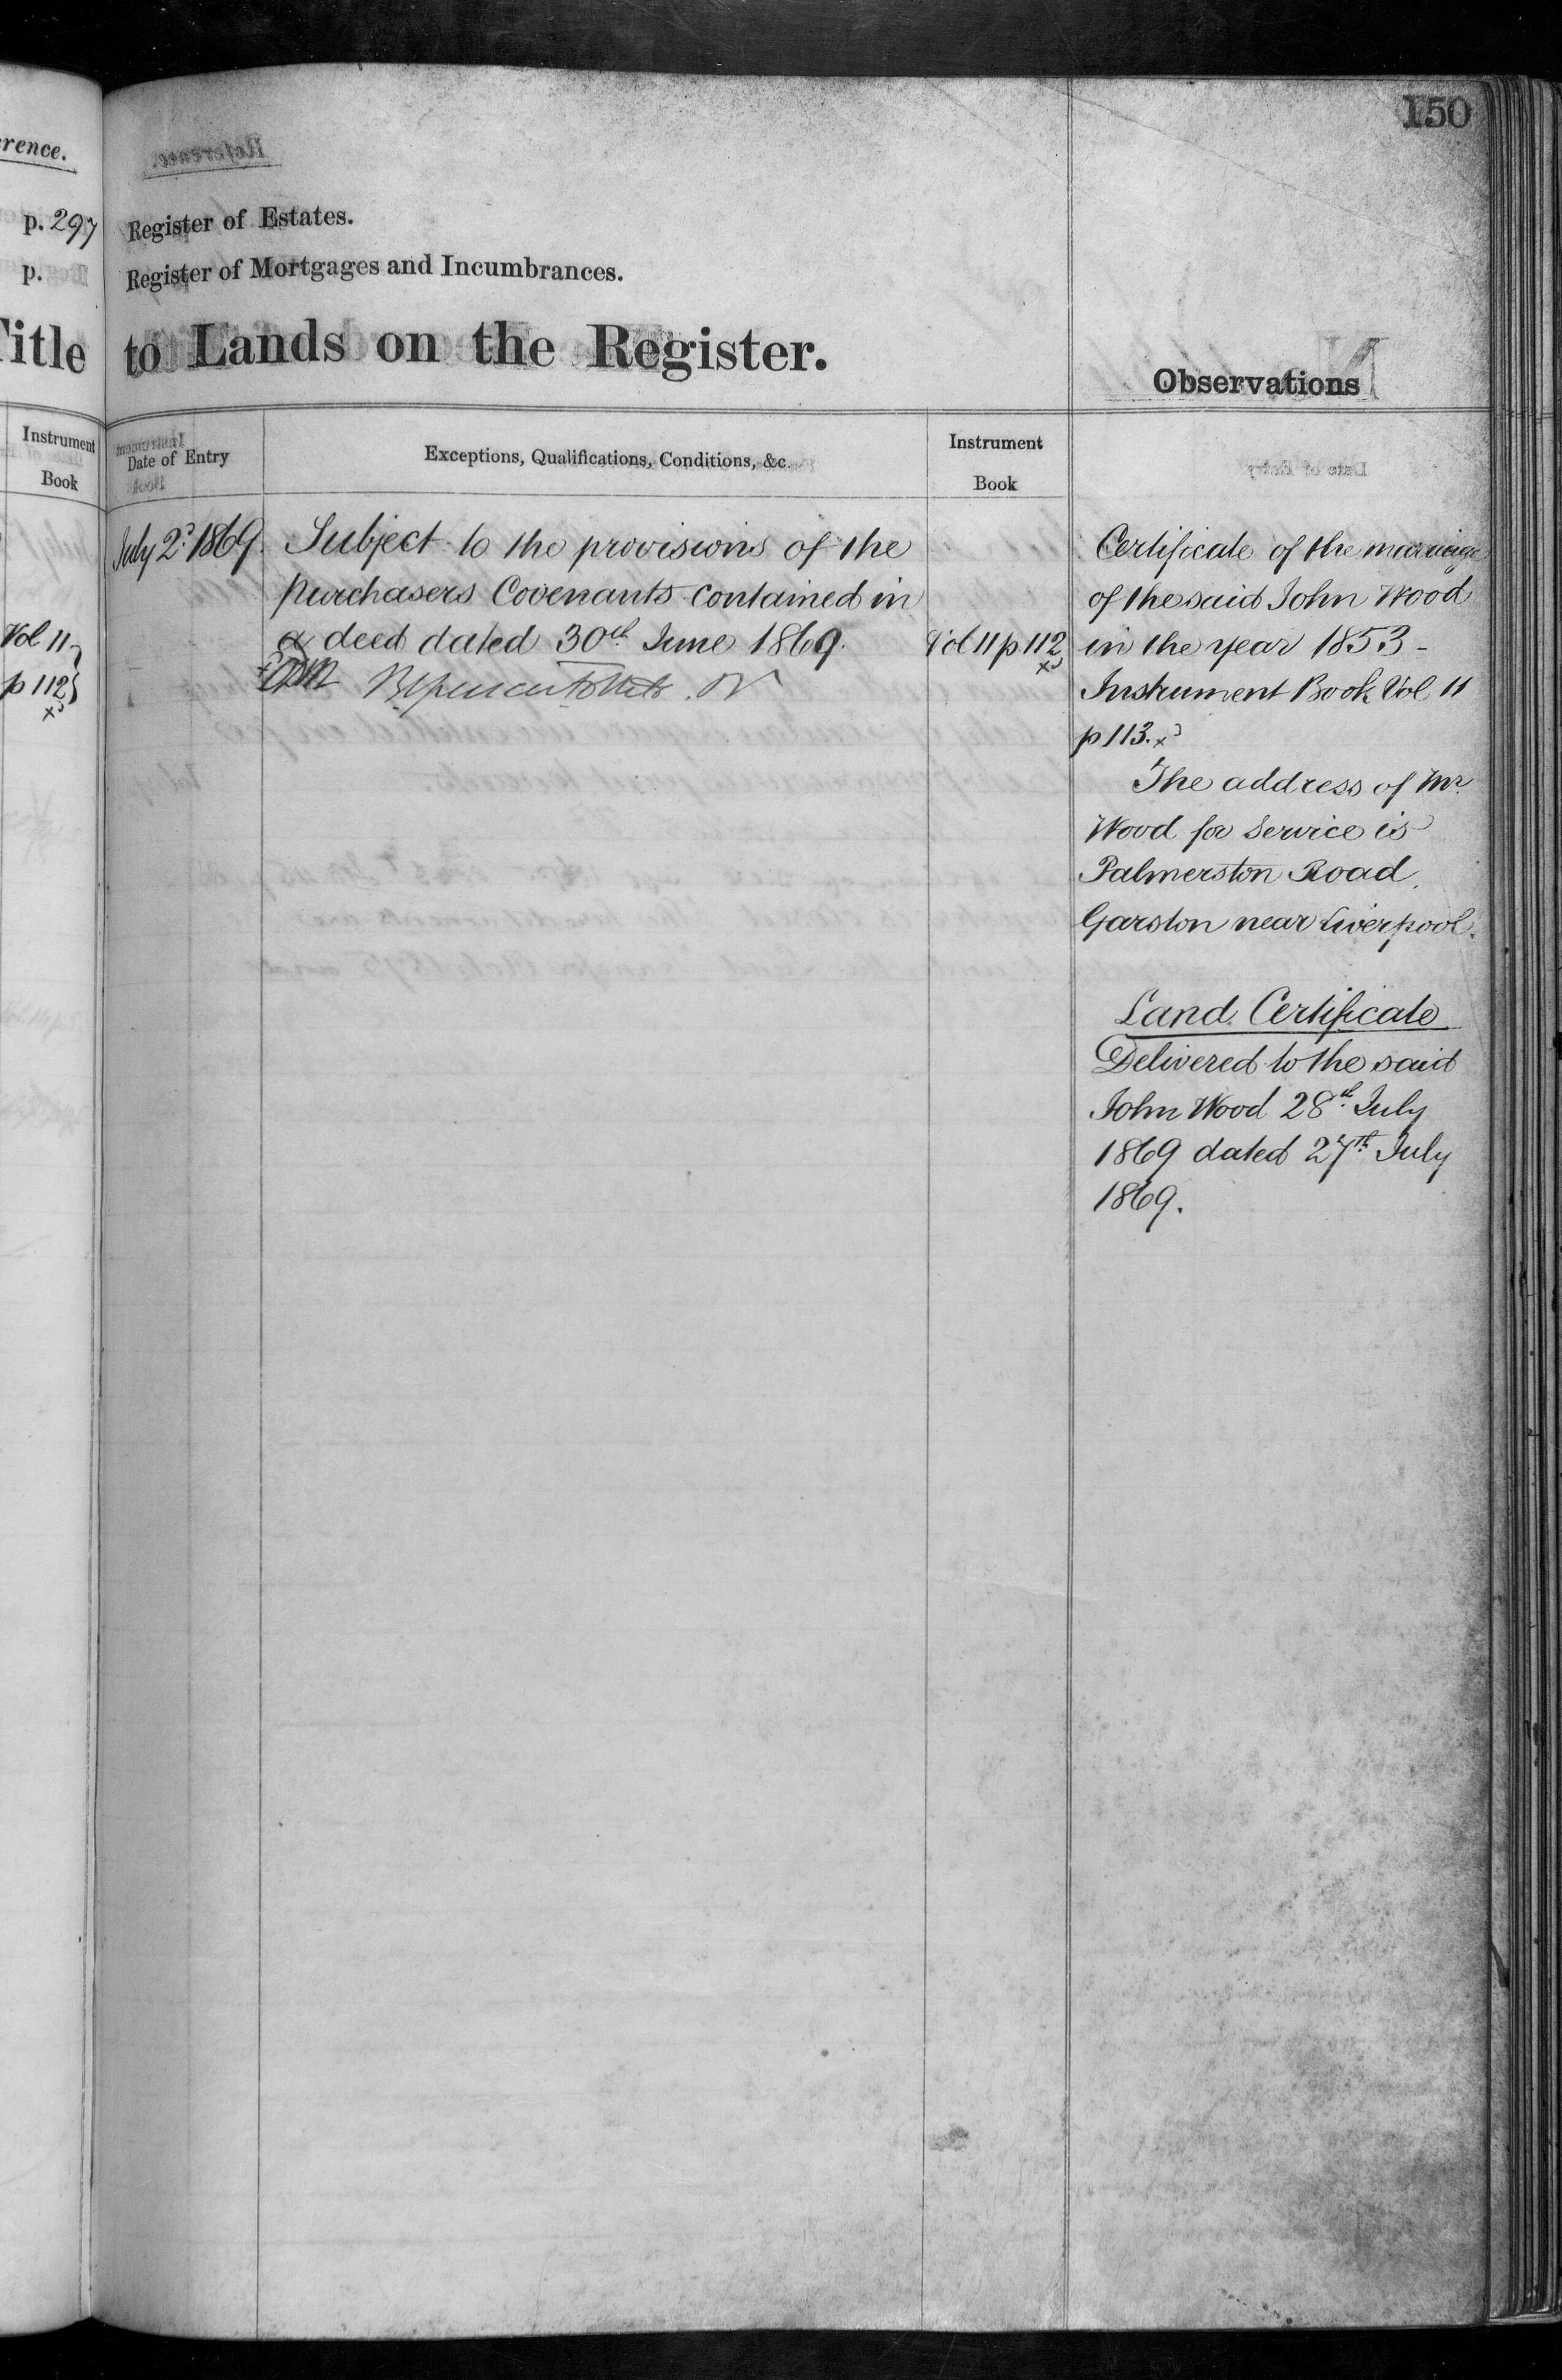 150
rence.
p. 297
p.
Register of Estates.
Register of Mortgages and Incumbrances.
Title to Lands on the Register.
Observations
Instrument
Book
Date of Entry
Exceptions, Qualifications, Conditions, &c.
Instrument
Book
Vol 11
p 112
July 2d 1869.
Subject to the provisions of the
purchasers Covenants contained in
a deed dated 30th June 1869.
Vol 11 p 112
Certificate of the marriage
of the said John Wood
in the year 1853 -
Instrument Book Vol 11
p 113.
The address of Mr.
Wood for service is
Palmerston Road
Garston near Liverpool.
Land Certificate
Delivered to the said
John Wood 28th July
1869 dated 27th July
1869.